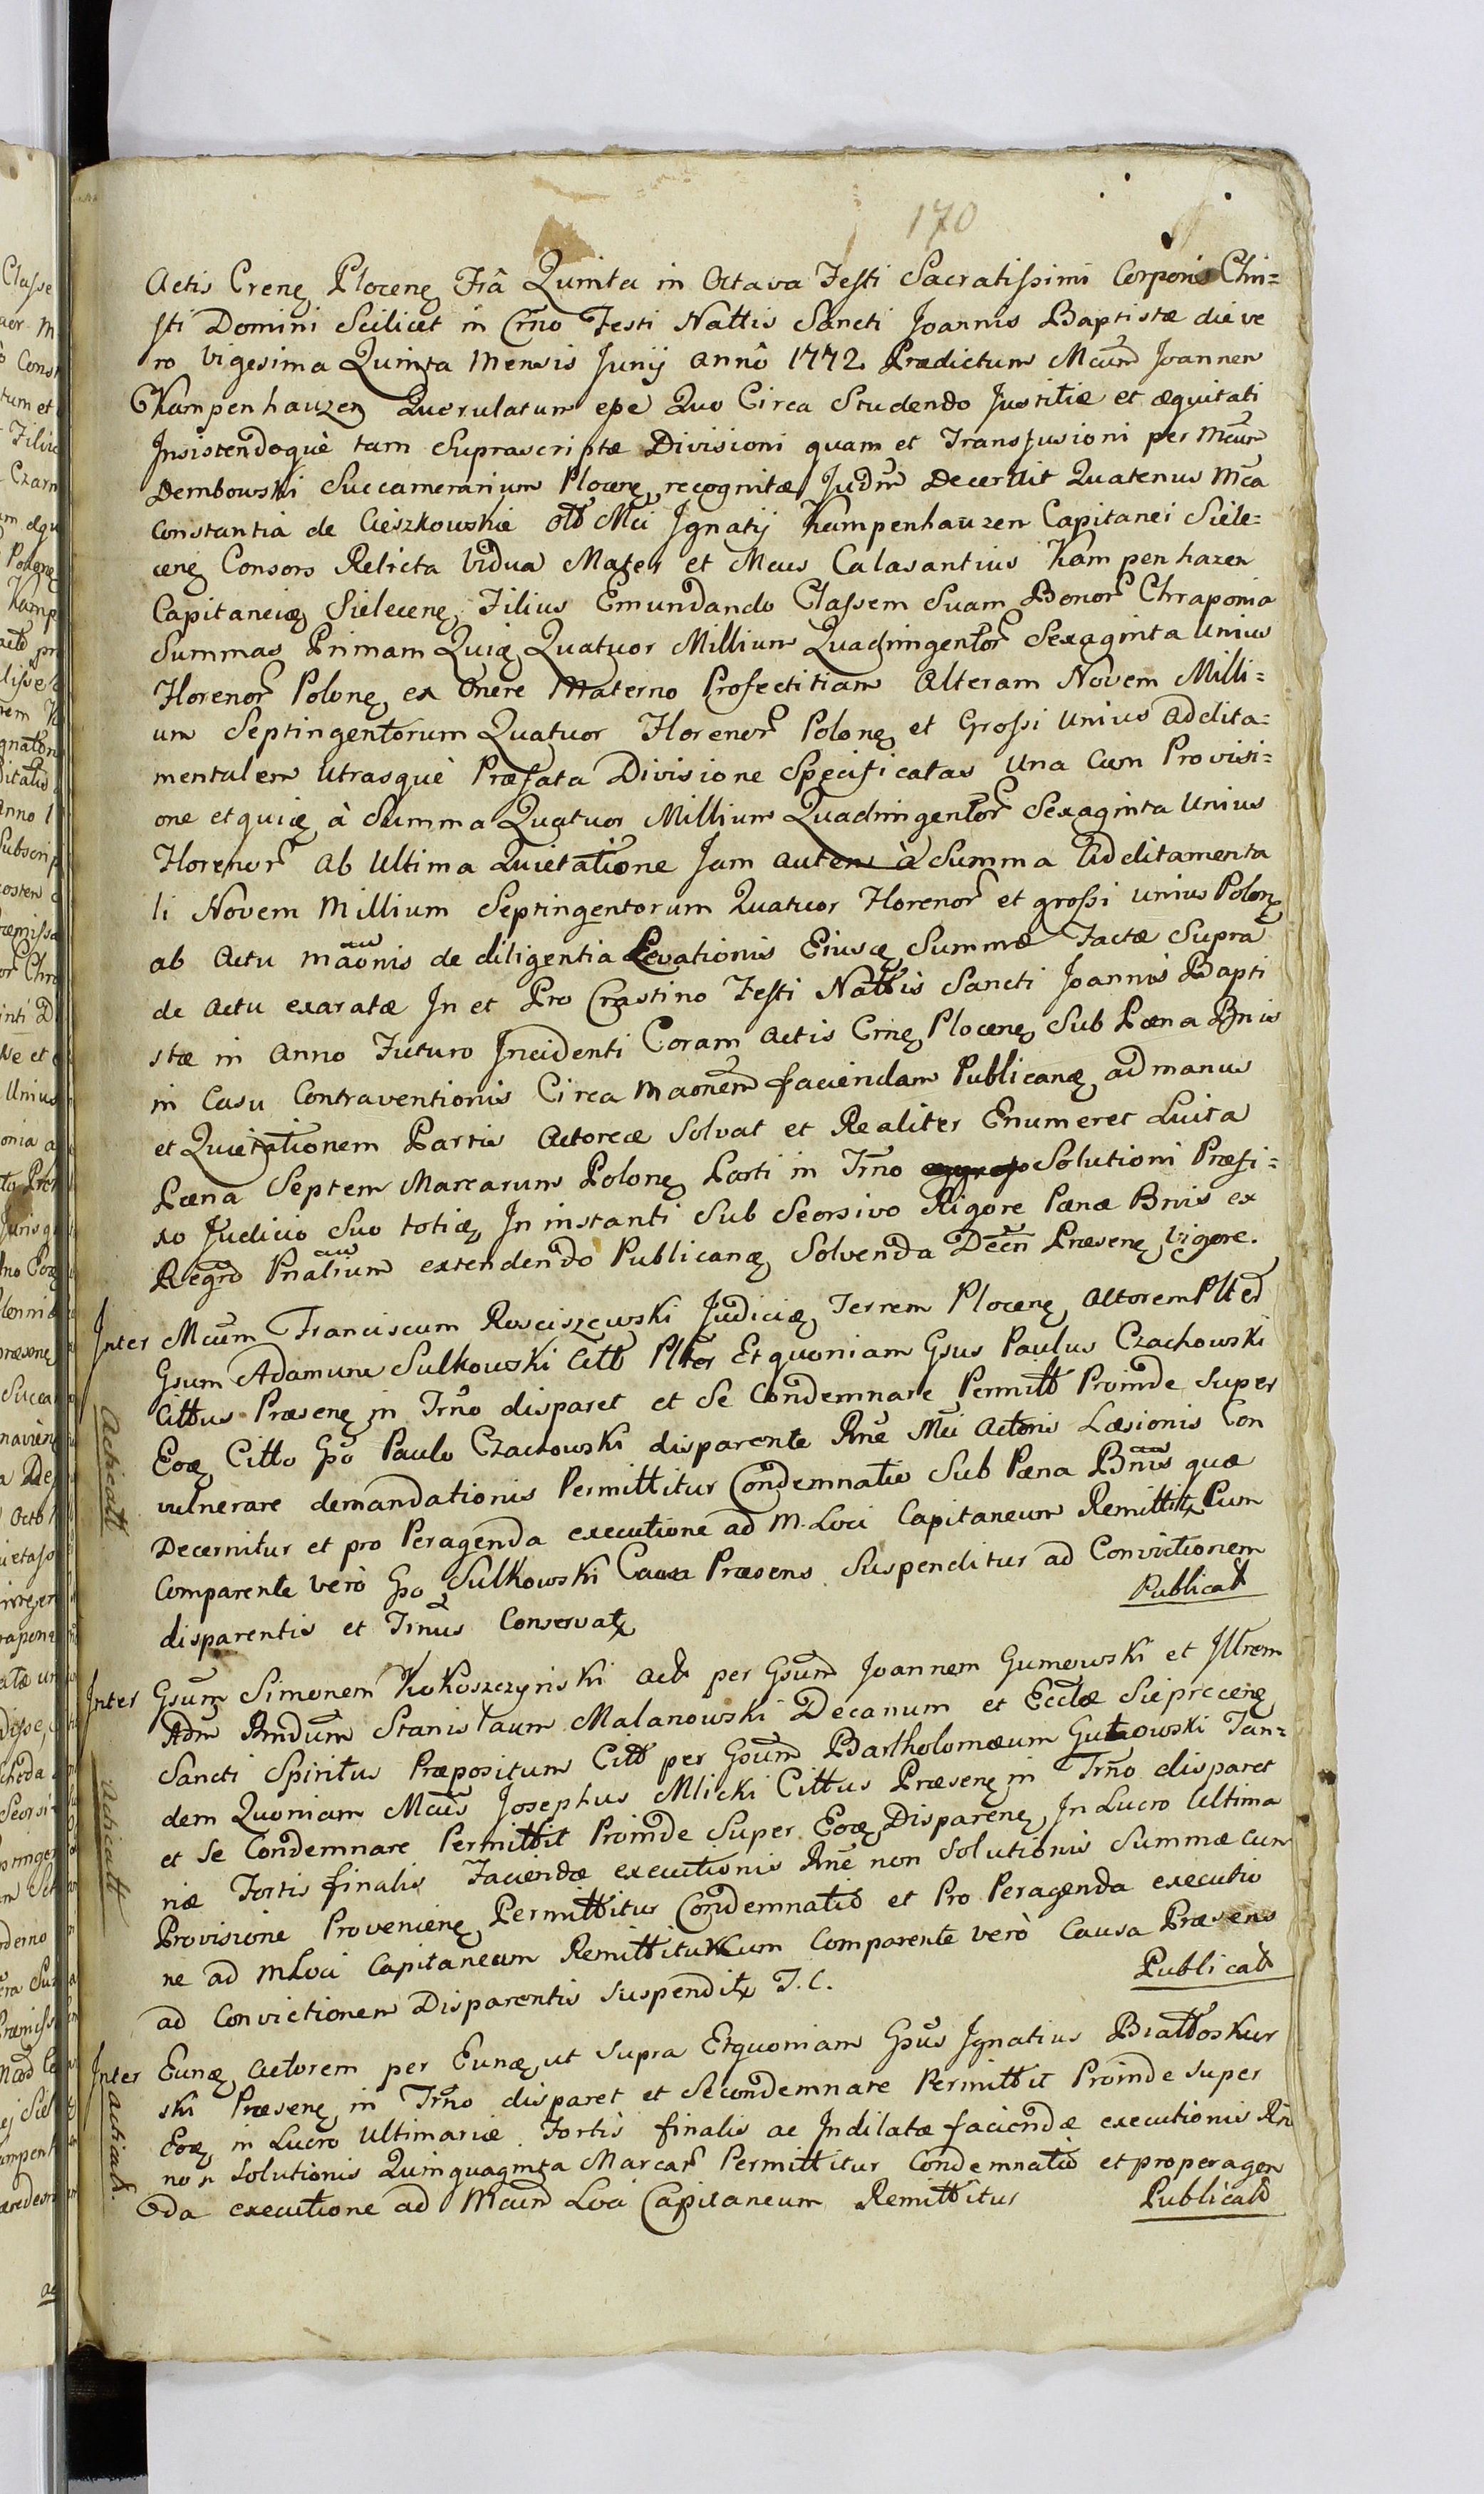 170
Actis Crenę Plocenę Frâ Quinta in Octava Festi Sacratissimi Corporis Chri=
sti Domini Scilicet in Crño Festi Nattis Sancti Joannis Baptistæ die ve
ro Vigesima Quinta Mensis Junij annô 1772. Prædictum Mcum Joannen
Kampenhauzen Querulatum eße Quo Circa Studendo Justitiæ et æquitati
Insistendoquè tam Suprascriptæ Divisioni quam et Transfusioni per Mcum
Dembowski Succamerarium Plocenę recognitæ Judm Decernit Quatenus Mca
Constantia de Cieszkowskie olt Mci Ignatij Kampenhauzen Capitanei Siele=
cenę Consors Relicta Vidua Mater et Mcus Calasantius Kampenhazen
Capitaneię Sielecenę Filius Emundando Classem Suam Bonor Chraponia
Summas Primam Quię Quatuor Millium Quadringentor Sexaginta Unius
Florenor Polonę ex Onere Materno Profectitiam Alteram Novem Milli=
um Septingentorum Quatuor Florenor Polonę et Grossi Unius Addita=
mentalem Utrasquè Præfata Divisione Specificatas Una Cum Provisi=
one etquię à Summa Quatuor Millium Quadringentor Sexaginta Unius
Florenor ab Ultima Quietatione Jam autem à Summa Additamenta
li Novem Millium Septingentorum Quatuor Florenor et grossi unius Polonę
ab Actu maonis de diligentia Levationis Eiusę Summæ Factæ Supra
de Actu exaratæ In et Pro Crastino Festi Nattis Sancti Joannis Bapti
stæ in Anno Futuro Incidenti Coram Actis Crnę Plocenę Sub Pœna Bnis
in Casu Contraventionis Circa Maonem faciendam Publicanę ad manus
et Quietationem Partis Actoreæ Solvat et Realiter Enumeret Luita
Pœna Septem Marcarum Polonę Parti in Trño Solutioni Præfi=
xo Judicio Suo totię In instanti Sub Seorsivo Rigore Pœnæ Bnis ex
Regro Pnalium extendendo Publicanę Solvenda Decn Præsenę Vigore.
Inter Mcum Franciscum Rosciszewski Judicię Terrem Plocenę Actorem Plt ed
Gsum Adamum Sulkowski Citt Plter Et quoniam Gsus Paulus Czachowski
Cittus Præsenę in Trño disparet et Se Condemnare Permitt Proinde Super
Eoę Citto Gso Paulo Czachowski disparente Rne Mci Actoris Læsionis Con
vulnerare demandationis Permittitur Condemnatio Sub Pæna Bnis quæ
Decernitur et pro Peragenda executione ad M. Loci Capitaneum Remittitx Cum
Comparente verò Gso Sulkowski Causa Præsens Suspenditur ad Convictionem
disparentis et Trnus Conservatx
Publicat
Acticatt
Inter Gsum Simonem Kokoszczynski Act per Gsum Joannem Gumowski et Jltrem
Adm Rndum Stanislaum Malanowski Decanum et Ecclæ Sieprecenę
Sancti Spiritus Præpositum Citt per Gsum Bartholomæum Gutkowski Tan=
dem Quoniam Mcus Josephus Mlicki Cittus Præsenę in Trño disparet
et Se Condemnare Permittit Proinde Super Eoę Disparenę In Lucro Ultima
riæ Fortis finalis Faciendæ executionis Rne non Solutionis Summæ cum
Provisione Provenienę Permittitur Condemnatio et Pro Peragenda executio
ne ad MLoci Capitaneum Remittitur Cum Comparente verò Causa Præsens
ad Convictionem Disparentis Suspenditx T. C.
Publicat
Acticatt
Inter Eunę Actorem per Eunę ut Supra Etquoniam Gsus Ignatius Biattoskur
ski Præsenę in Trño disparet et Secondemnare Permittit Proinde Super
Eoę in Lucro Ultimariæ Fortis finalis ac Indilatæ faciendæ executionis Rn
non Solutionis Quinquaginta Marcar Permittitur Condemnatio et pro peragen
da executione ad Mcum Loci Capitaneum Remittitur
Publicatt
Acticat.